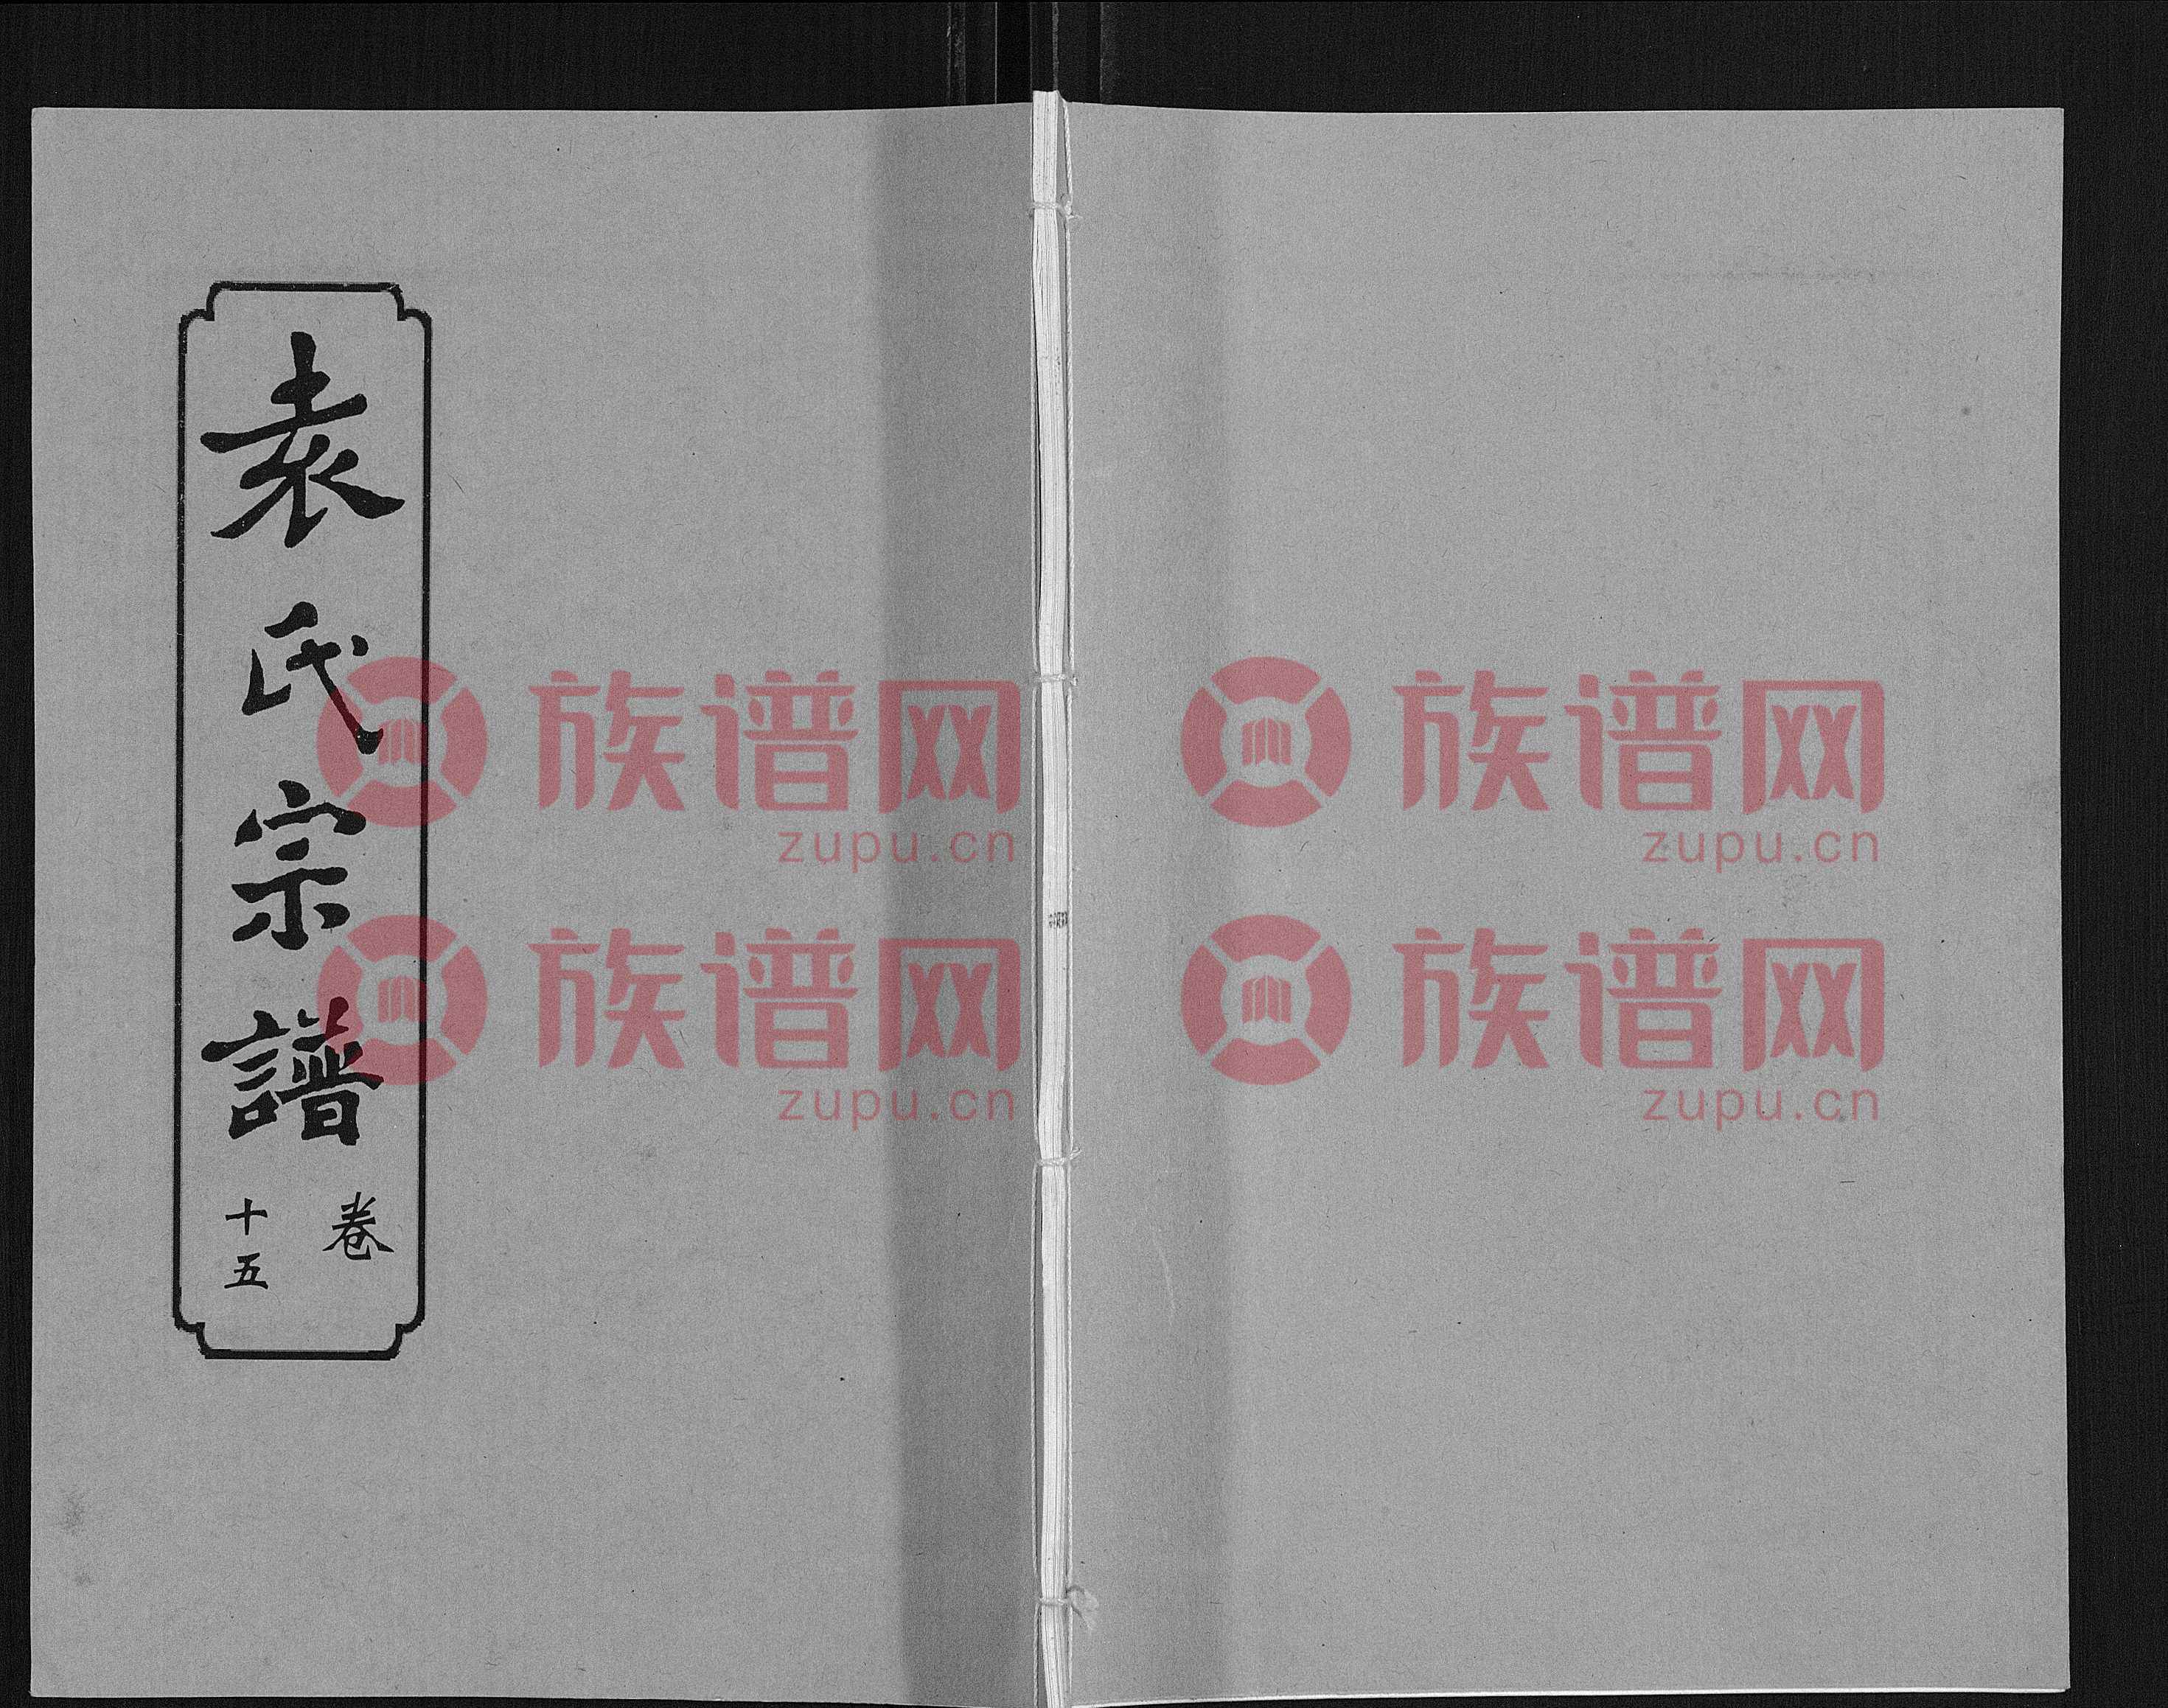 袁氏宗譜
卷
十五
族谱网
zupu.cn
族谱网
zupu.cn
族谱网
zupu.cn
族谱网
zupu.cn